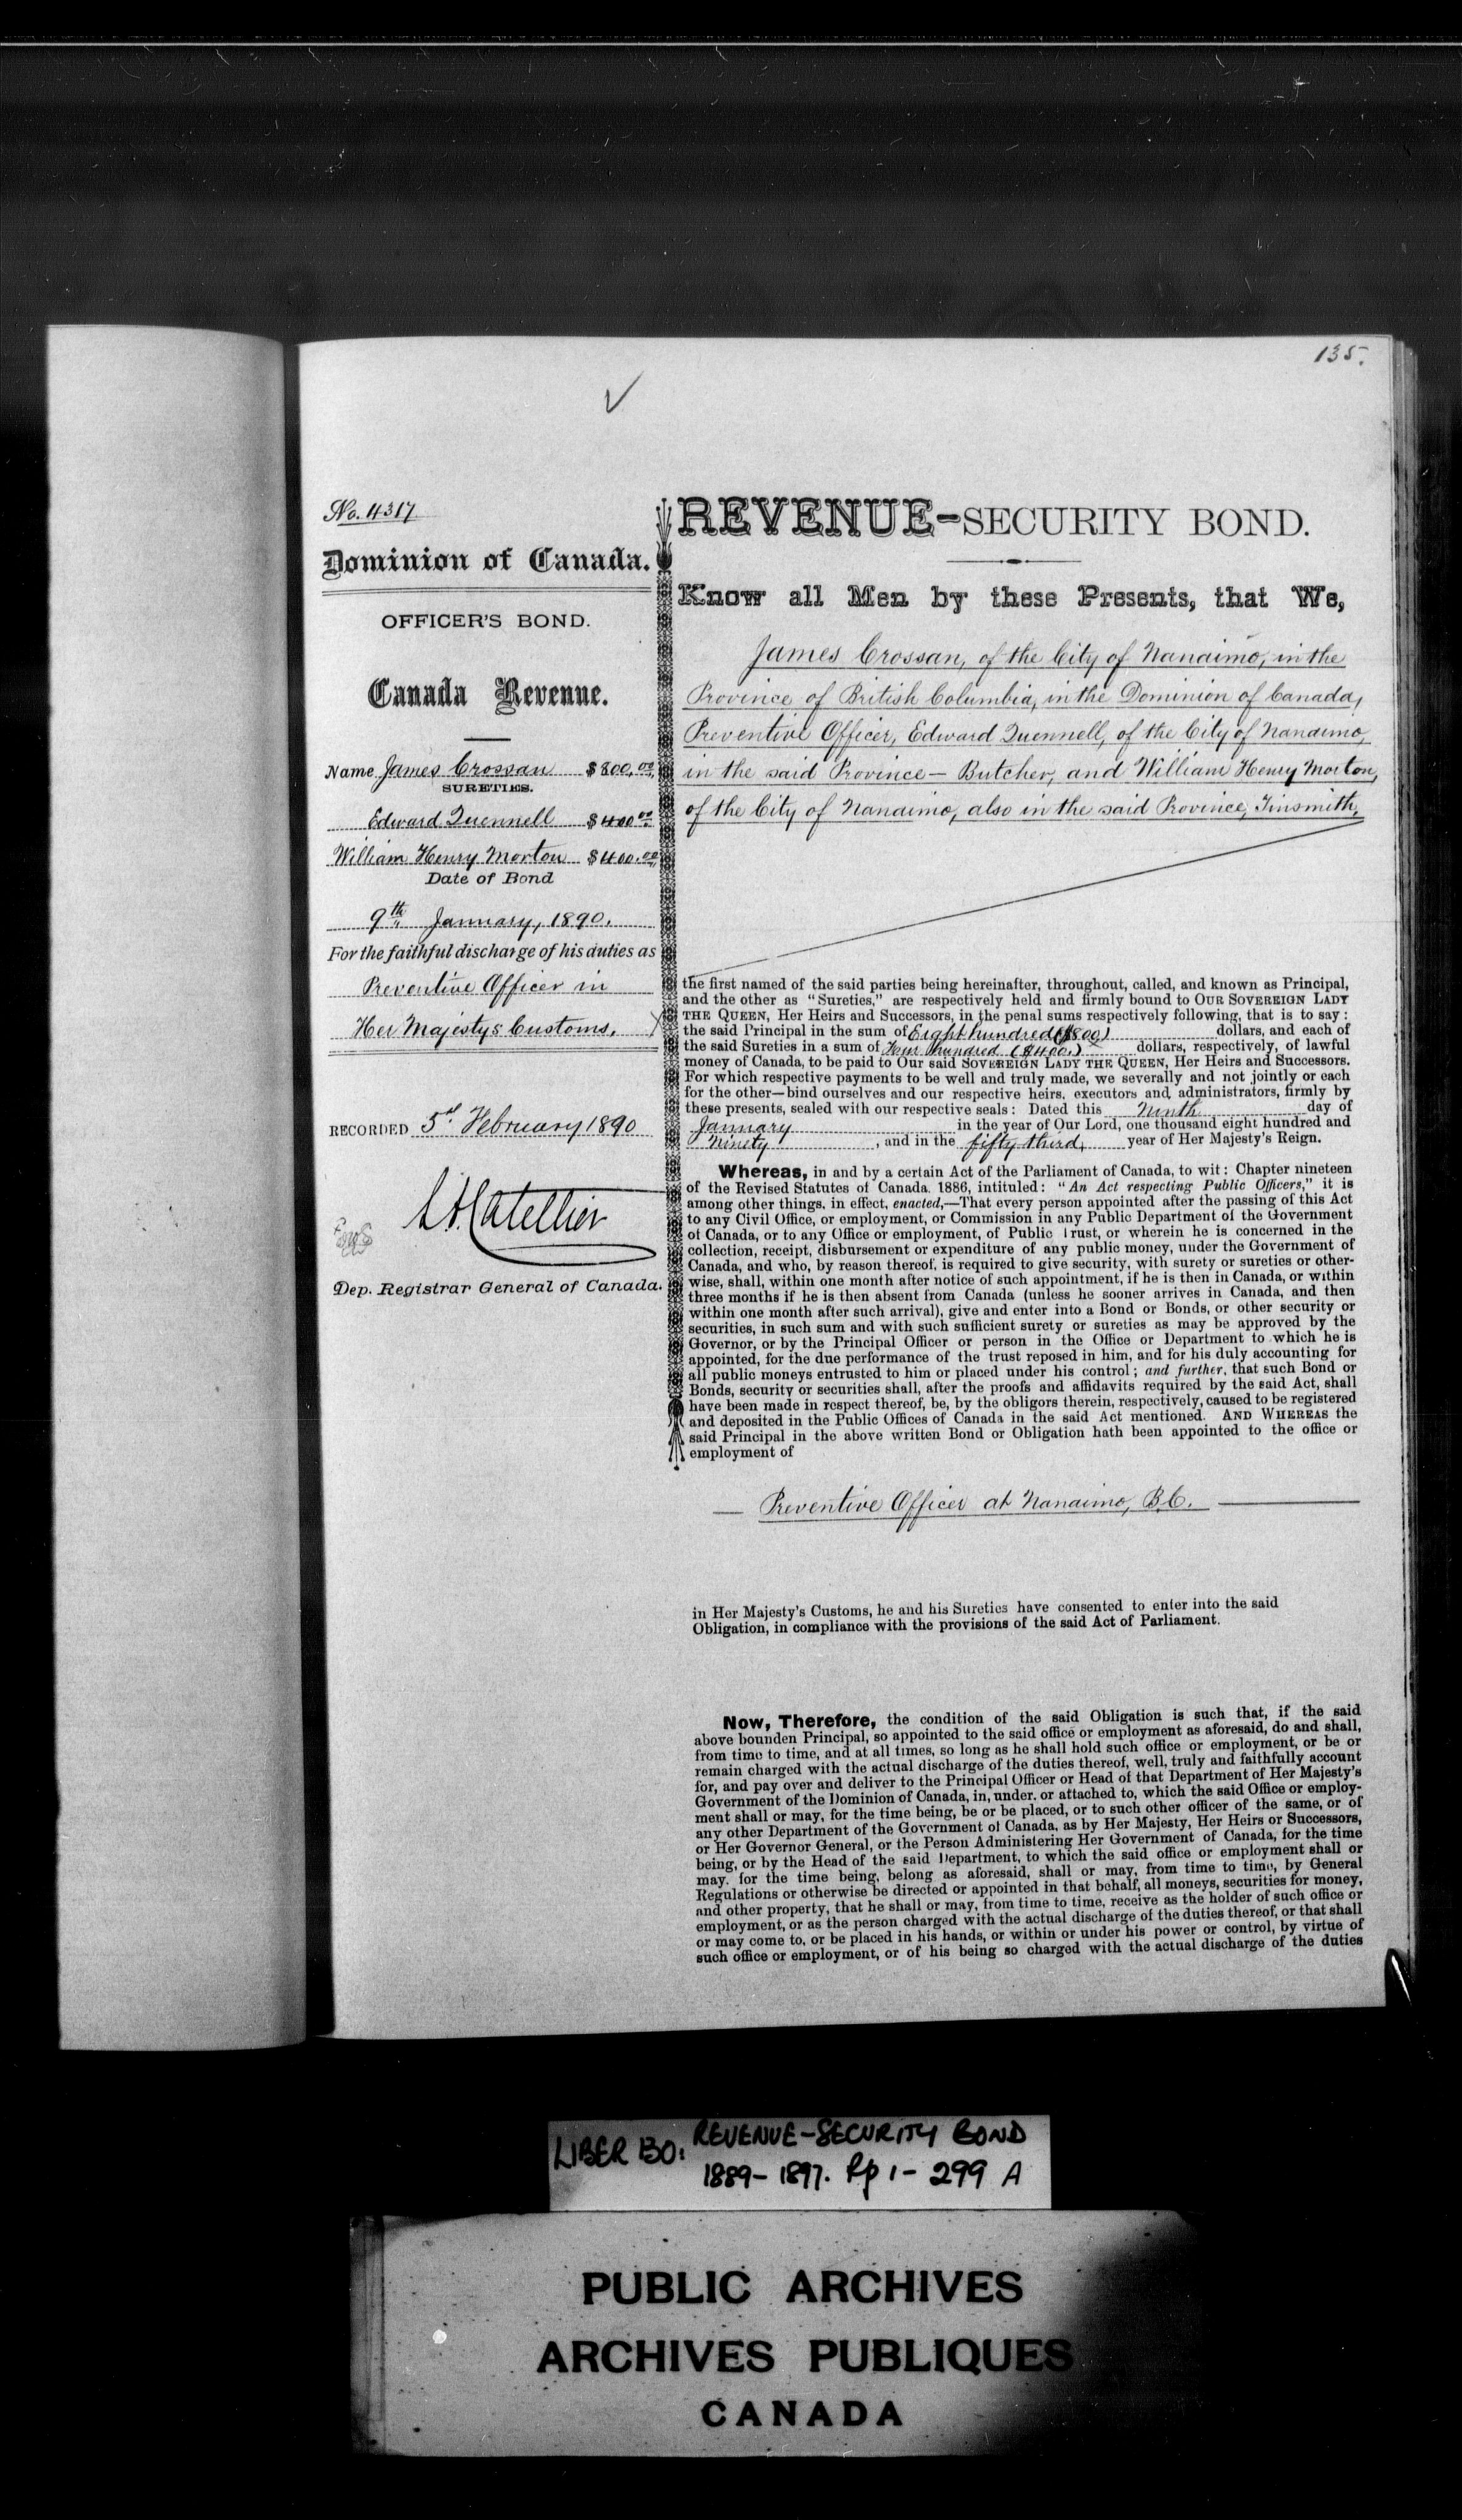 135.
No. 4317
Dominion of Canada.
OFFICER'S BOND.
Canada Revenue.
Name James Crossan $800.00
SURETIES.
Edward Quennell $400.00
William Henry Morton $400.00
Date of Bond
9th January, 1890.
For the faithful discharge of his duties as
Preventive Officer in
Her Majesty's Customs.
RECORDED 5th February 1890
L. A. Catellier
Dep. Registrar General of Canada.
REVENUE-SECURITY BOND.
Know all Men by these Presents, that We,
James Crossan, of the City of Nanaimo, in the
Province of British Columbia, in the Dominion of Canada,
Preventive Officer, Edward Quennell, of the City of Nanaimo,
in the said Province — Butcher, and William Henry Morton,
of the City of Nanaimo, also in the said Province, Tinsmith,
the first named of the said parties being hereinafter, throughout, called, and known as Principal,
and the other as "Sureties," are respectively held and firmly bound to OUR SOVEREIGN LADY
THE QUEEN, Her Heirs and Successors, in the penal sums respectively following, that is to say:
the said Principal in the sum of Eight hundred ($800) dollars, and each of
the said Sureties in a sum of Four hundred ($400.) dollars, respectively, of lawful
money of Canada, to be paid to Our said SOVEREIGN LADY THE QUEEN, Her Heirs and Successors.
For which respective payments to be well and truly made, we severally and not jointly or each
for the other—bind ourselves and our respective heirs, executors and administrators, firmly by
these presents, sealed with our respective seals: Dated this Ninth day of
January in the year of Our Lord, one thousand eight hundred and
Ninety, and in the fifty third, year of Her Majesty's Reign.
Whereas, in and by a certain Act of the Parliament of Canada, to wit: Chapter nineteen
of the Revised Statutes of Canada, 1886, intituled: "An Act respecting Public Officers," it is
among other things, in effect, enacted,—That every person appointed after the passing of this Act
to any Civil Office, or employment, or Commission in any Public Department of the Government
of Canada, or to any Office or employment, of Public Trust, or wherein he is concerned in the
collection, receipt, disbursement or expenditure of any public money, under the Government of
Canada, and who, by reason thereof, is required to give security, with surety or sureties or other-
wise, shall, within one month after notice of such appointment, if he is then in Canada, or within
three months if he is then absent from Canada (unless he sooner arrives in Canada, and then
within one month after such arrival), give and enter into a Bond or Bonds, or other security or
securities, in such sum and with such sufficient surety or sureties as may be approved by the
Governor, or by the Principal Officer or person in the Office or Department to which he is
appointed, for the due performance of the trust reposed in him, and for his duly accounting for
all public moneys entrusted to him or placed under his control; and further, that such Bond or
Bonds, security or securities shall, after the proofs and affidavits required by the said Act, shall
have been made in respect thereof, be, by the obligors therein, respectively, caused to be registered
and deposited in the Public Offices of Canada in the said Act mentioned. AND WHEREAS the
said Principal in the above written Bond or Obligation hath been appointed to the office or
employment of
— Preventive Officer at Nanaimo, B.C. —
in Her Majesty's Customs, he and his Sureties have consented to enter into the said
Obligation, in compliance with the provisions of the said Act of Parliament.
Now, Therefore, the condition of the said Obligation is such that, if the said
above bounden Principal, so appointed to the said office or employment as aforesaid, do and shall,
from time to time, and at all times, so long as he shall hold such office or employment, or be or
remain charged with the actual discharge of the duties thereof, well, truly and faithfully account
for, and pay over and deliver to the Principal Officer or Head of that Department of Her Majesty's
Government of the Dominion of Canada, in, under, or attached to, which the said Office or employ-
ment shall or may, for the time being, be or be placed, or to such other officer of the same, or of
any other Department of the Government of Canada, as by Her Majesty, Her Heirs or Successors,
or Her Governor General, or the Person Administering Her Government of Canada, for the time
being, or by the Head of the said Department, to which the said office or employment shall or
may, for the time being, belong as aforesaid, shall or may, from time to time, by General
Regulations or otherwise be directed or appointed in that behalf, all moneys, securities for money,
and other property, that he shall or may, from time to time, receive as the holder of such office or
employment, or as the person charged with the actual discharge of the duties thereof, or that shall
or may come to, or be placed in his hands, or within or under his power or control, by virtue of
such office or employment, or of his being so charged with the actual discharge of the duties
LIBER 130: REVENUE-SECURITY BOND
1889-1897. Pp 1-299 A
PUBLIC ARCHIVES
ARCHIVES PUBLIQUES
CANADA